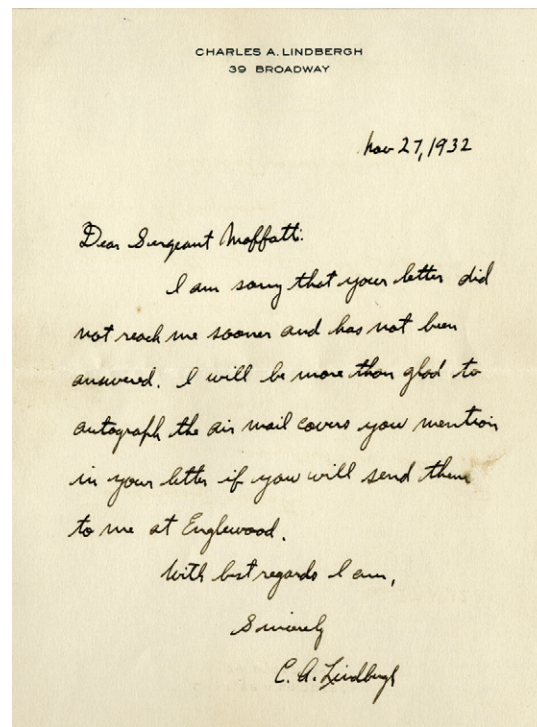 CHARLES A. LINDBERGH
39 BROADWAY
Nov 27, 1932
Dear Sergeant Moffatt:
I am sorry that your letter did
not reach me sooner and has not been
answered. I will be more than glad to
autograph the air mail covers you mention
in your letter if you will send them
to me at Englewood.
With best regards I am,
Sincerely
C. A. Lindbergh